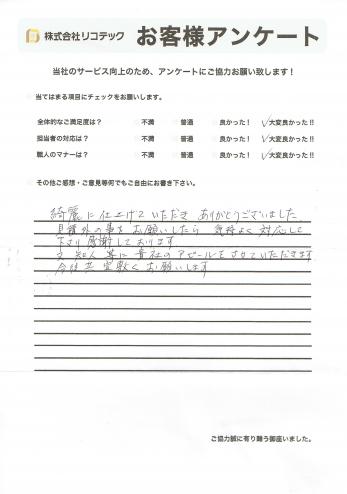 株式会社リコテック お客様アンケート
当社のサービス向上のため、アンケートにご協力お願い致します！
当てはまる項目にチェックをお願いします。
全体的なご満足度は？ 不満 普通 良かった！ ✓大変良かった!!
担当者の対応は？ 不満 普通 良かった！ ✓大変良かった!!
職人のマナーは？ 不満 普通 良かった！ ✓大変良かった!!
その他ご感想・ご意見等何でもご自由にお書き下さい。
綺麗に仕上げていただき ありがとうございました
見積外の事も お願いしたら 気持よく 対応して
下さり 感謝しております
又 知人等に 貴社のアピールをさせていただきます
今後共 宜敷く お願いします
ご協力誠に有り難う御座いました。